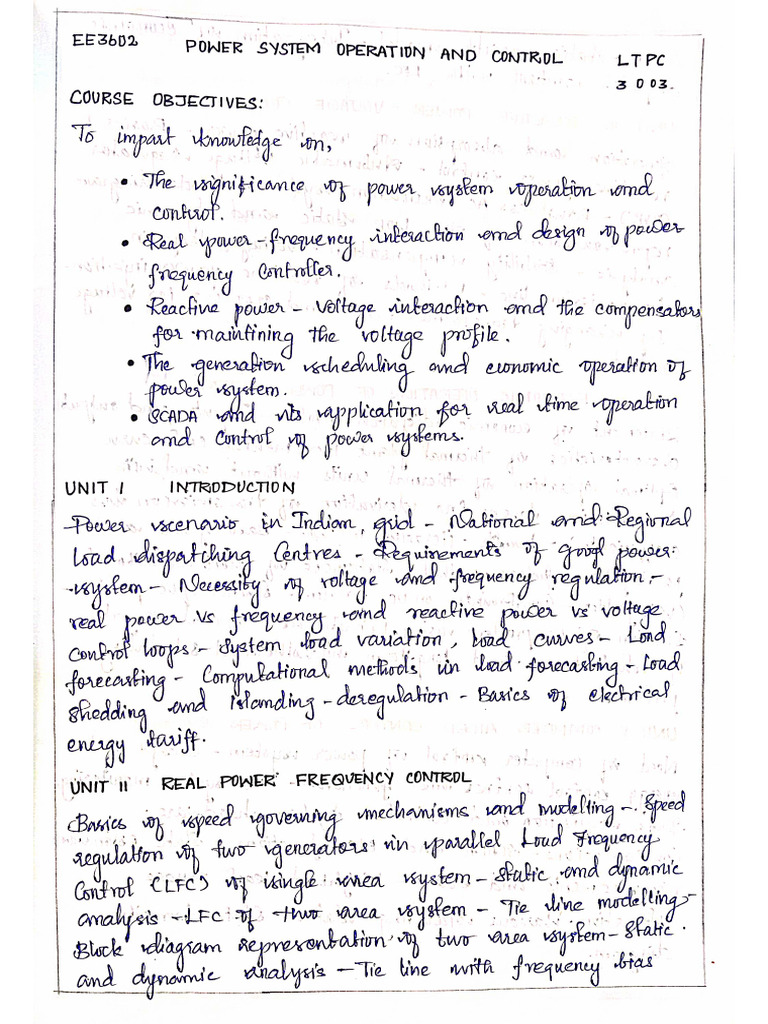 EE3602 POWER SYSTEM OPERATION AND CONTROL LTPC
3 0 0 3.
COURSE OBJECTIVES:
To impart knowledge on,
• The significance of power system operation and
control.
• Real power - frequency interaction and design of power
frequency Controller.
• Reactive power - Voltage interaction and the compensators
for maintining the voltage profile.
• The generation scheduling and economic operation of
power system.
• SCADA and its application for real time operation
and Control of power systems.
UNIT I INTRODUCTION
Power scenario in Indian grid - National and Regional
Load dispatching Centres - Requirements of good power
system - Necessity of voltage and frequency regulation -
real power vs frequency and reactive power vs voltage
Control loops - System load variation, Load curves - Load
forecasting - Computational methods in load forecasting - Load
Shedding and Islanding - deregulation - Basics of electrical
energy tariff.
UNIT II REAL POWER FREQUENCY CONTROL
Basics of speed governing mechanisms and modelling - Speed
regulation of two generators in parallel Load Frequency
Control (LFC) of single area system - Static and dynamic
analysis - LFC of two area system - Tie line modelling -
Block diagram representation of two area system - Static
and dynamic analysis - Tie line with frequency bias